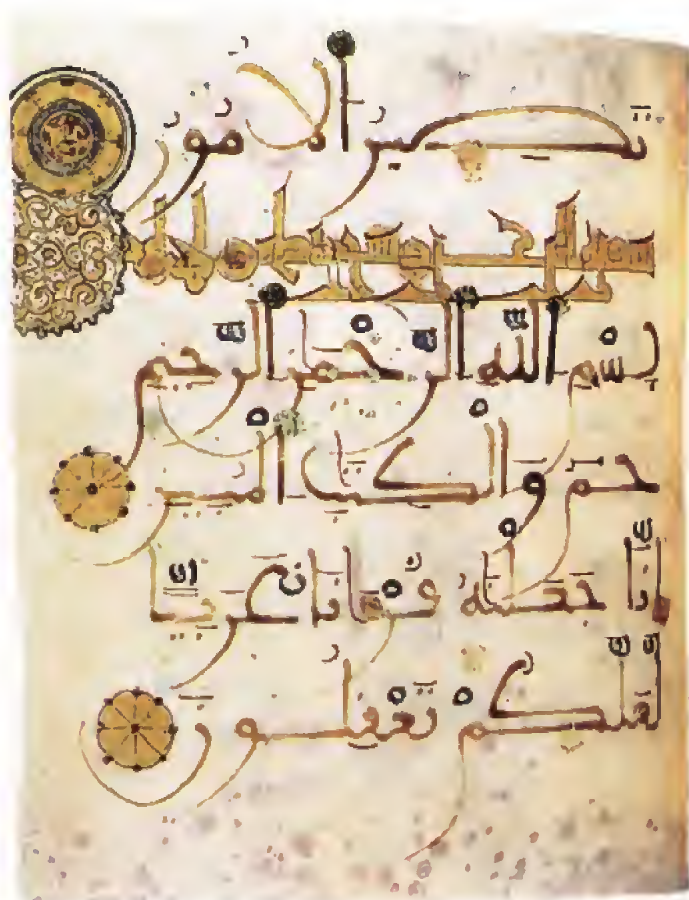 تَصِيرُ الْأُمُورُ
سورة الزخرف
بِسْمِ اللَّهِ الرَّحْمَٰنِ الرَّحِيمِ
حمَ وَالْكِتَٰبِ الْمُبِينِ
إِنَّا جَعَلْنَٰهُ قُرْءَانًا عَرَبِيًّا
لَّعَلَّكُمْ تَعْقِلُونَ